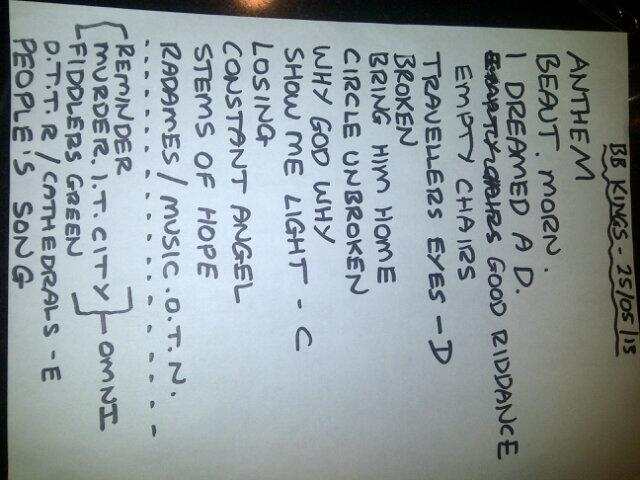 BB KINGS - 25/05/13
ANTHEM
BEAUT. MORN.
I DREAMED A D.
GOOD RIDDANCE
EMPTY CHAIRS
TRAVELLERS EYES - D
BROKEN
BRING HIM HOME
CIRCLE UNBROKEN
WHY GOD WHY
SHOW ME LIGHT - C
LOSING
CONSTANT ANGEL
STEMS OF HOPE
RADAMES / MUSIC.O.T.N.
REMINDER
MURDER.I.T.CITY - OMNI
FIDDLERS GREEN
D.T.T.R / CATHEDRALS - E
PEOPLE'S SONG